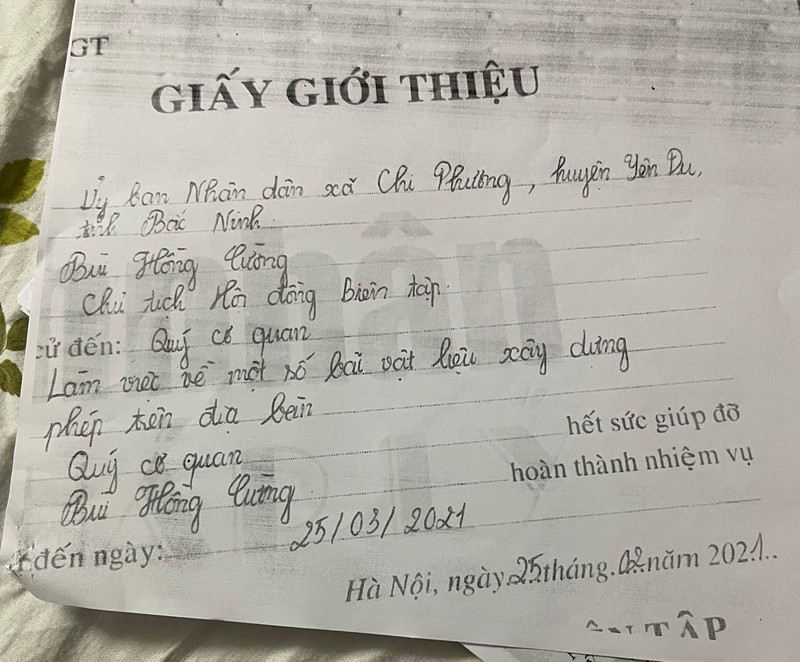 GT
GIẤY GIỚI THIỆU
Ủy ban Nhân dân xã Chi Phương, huyện Yên Du,
tỉnh Bắc Ninh
Bùi Hồng Cường
Chủ tịch Hội đồng biên tập.
cử đến: Quý cơ quan
Làm việc về một số bãi vật liệu xây dựng
phép trên địa bàn
Quý cơ quan hết sức giúp đỡ
Bùi Hồng Cường hoàn thành nhiệm vụ
đến ngày: 25/03/2021
Hà Nội, ngày 25 tháng 02 năm 2021..
TẬP